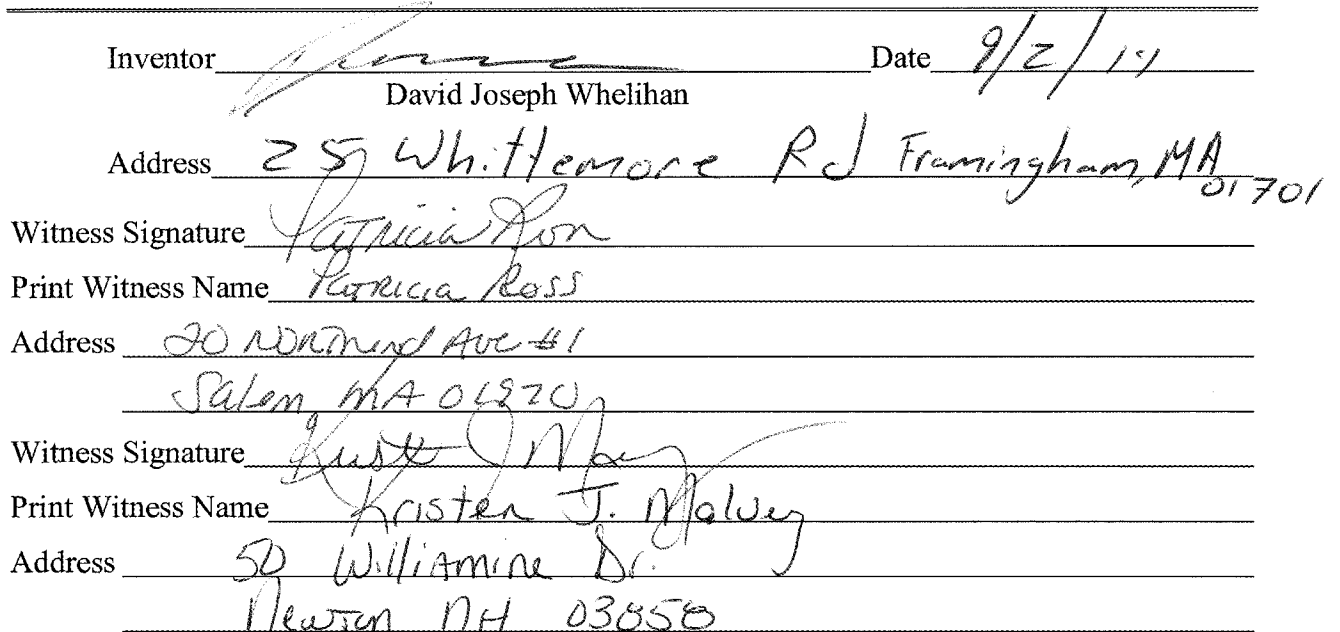 Inventor Date 9/2/14
David Joseph Whelihan
Address 25 Whittemore Rd Framingham, MA 01701
Witness Signature Patricia Ross
Print Witness Name Patricia Ross
Address 20 Northend Ave #1
Salem, MA 01970
Witness Signature
Print Witness Name Kristen J. Malvey
Address 50 Williamine Dr.
Newton NH 03858